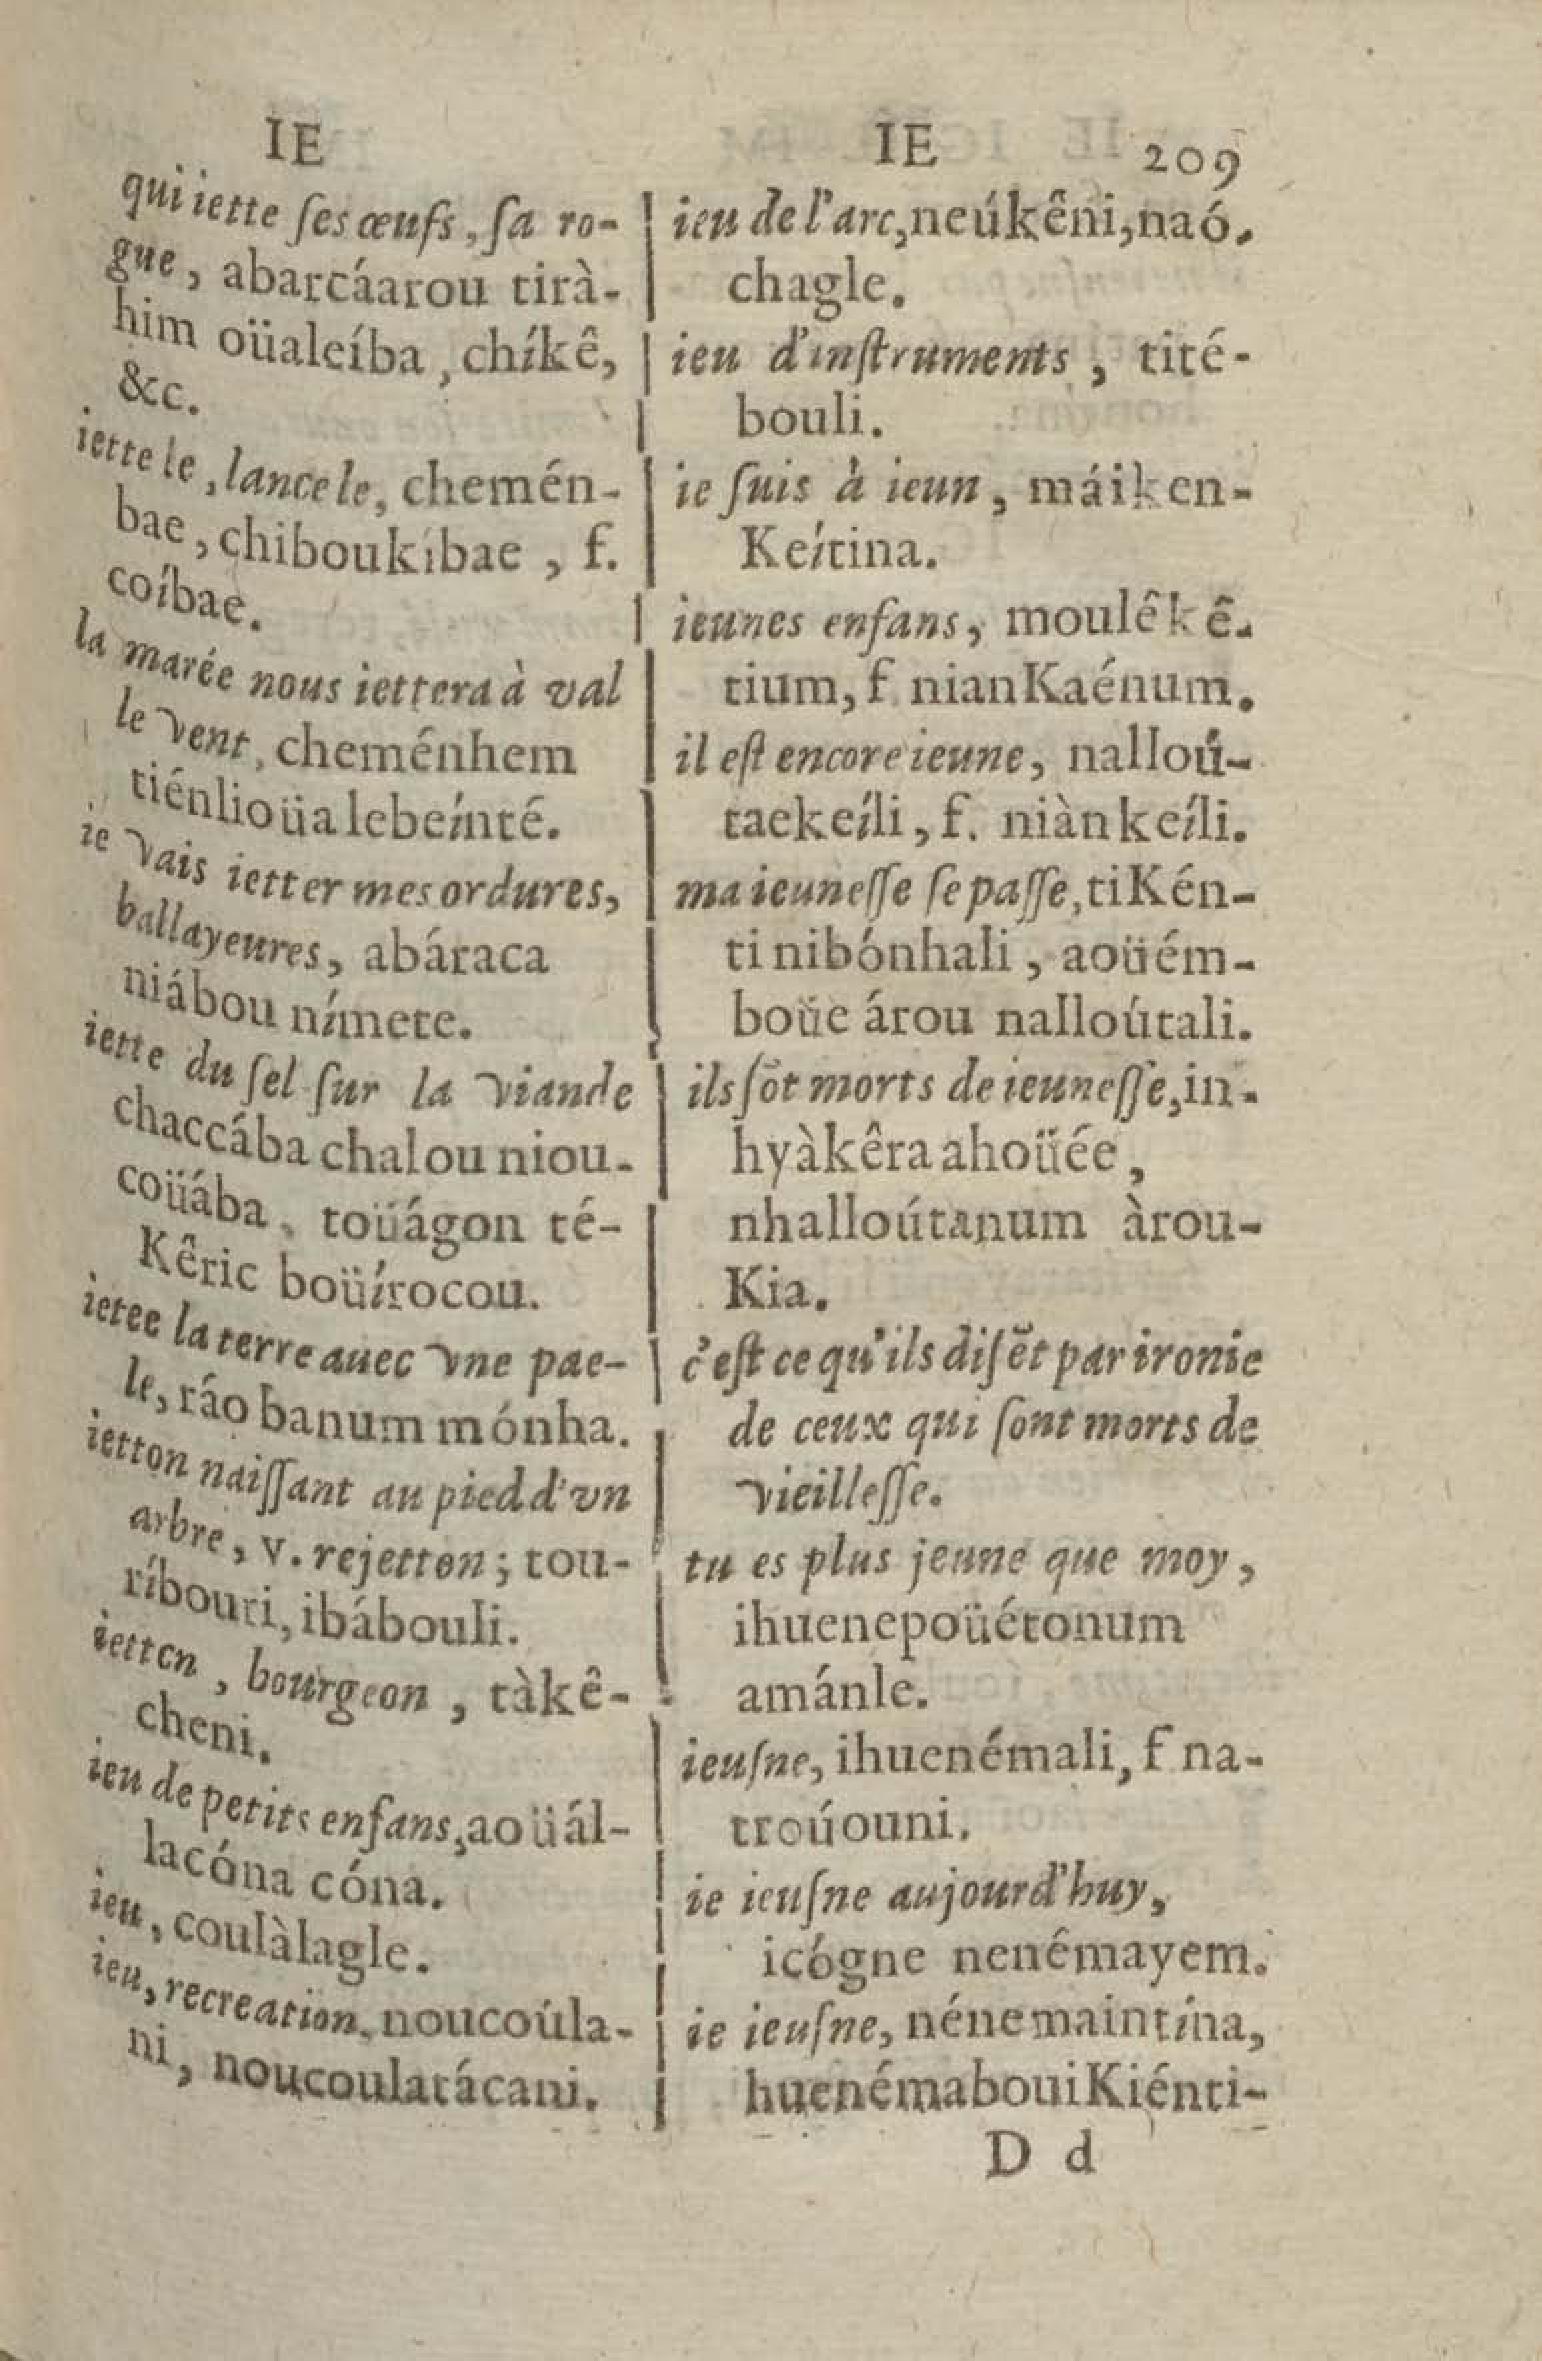 IE
qui iette ſes œufs, ſa ro-
gue, abarcáarou tirà-
him oüaleíba, chíkê,
&c.
iette le, lance le, chemén-
bae, chiboukíbae, f.
coíbae.
la marée nous iettera à val
le vent, cheménhem
tiénlioüa lebeínté.
ie vais ietter mes ordures,
ballayeures, abáraca
niábou nímete.
iette du ſel ſur la viande
chaccába chalou niou-
coüába, toüágon té-
Kêric boüírocou.
ietee la terre auec vne pae-
le, ráo banum mónha.
ietton naiſſant au pied d'vn
arbre, v. rejetton; tou-
ríbouri, ibábouli.
ietton, bourgeon, tàkê-
cheni.
ieu de petits enfans, aoüál-
lacóna cóna.
ieu, coulàlagle.
ieu, recreation, noucoúla-
ni, noucoulatácani.
IE 209
ieu de l'arc, neúkêni, naó.
chagle.
ieu d'inſtruments, tité-
bouli.
ie ſuis à ieun, máiken-
Keítina.
ieunes enfans, moulêkê-
tium, f. nianKaénum.
il eſt encore ieune, nalloú-
taekeíli, f. niànkeíli.
ma ieuneſſe ſe paſſe, tiKén-
ti nibónhali, aoüém-
boüe árou nalloútali.
ils ſõt morts de ieuneſſe, in-
hyàkêra ahoüée,
nhalloútanum àrou-
Kia.
c'eſt ce qu'ils diſẽt par ironie
de ceux qui ſont morts de
vieilleſſe.
tu es plus jeune que moy,
ihuenepoüétonum
amánle.
ieuſne, ihuenémali, f na-
troúouni.
ie ieuſne aujourd'huy,
icógne nenêmayem.
ie ieuſne, nénemaintína,
huenémabouiKiénti-
D d